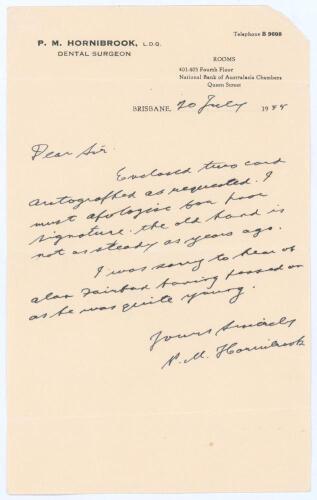 Telephone B 9698
P. M. HORNIBROOK, L.D.Q.
DENTAL SURGEON
ROOMS
401-403 Fourth Floor
National Bank of Australasia Chambers
Queen Street
BRISBANE, 20 July 19
Dear Sir.
Enclosed two card
autographed as requested. I
must apologise for poor
signature. the old hand is
not as steady as years ago.
I was sorry to hear of
alan Fairfax having passed on
as he was quite young.
Yours Sincerely
P. M. Hornibrook